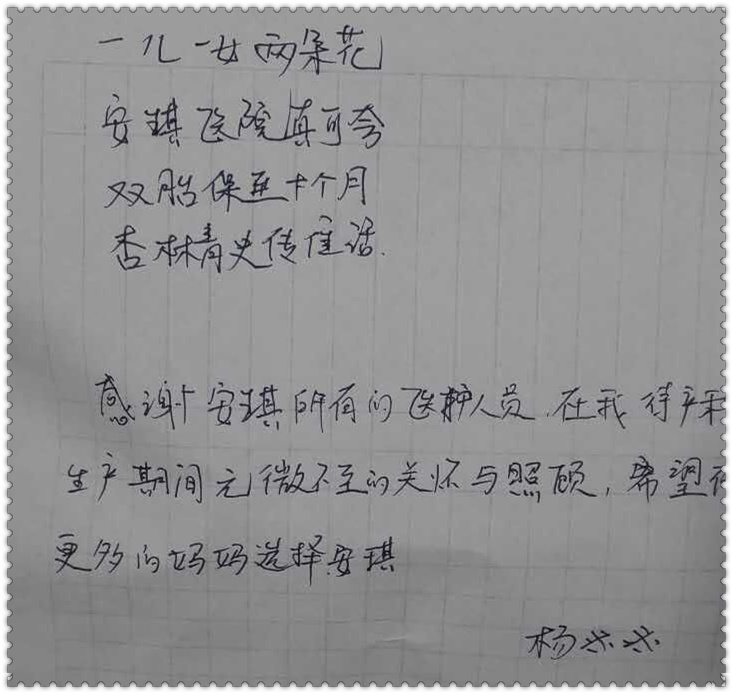 一儿一女两朵花
安琪医院真可夸
双胎保至十个月
杏林青史传佳话.
感谢安琪所有的医护人员.在我待产和
生产期间无微不至的关怀与照顾,希望
更多的妈妈选择安琪
杨